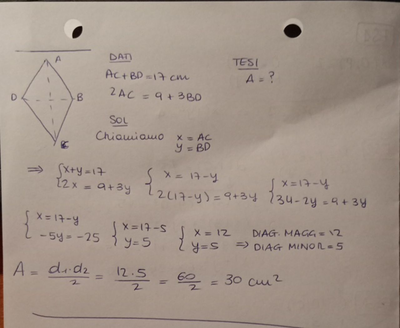 A
D B
C
DATI
AC+BD=17 cm
2AC = 9+3BD
TESI
A=?
SOL
Chiamiamo x = AC
y = BD
⇒ {x+y=17 {x = 17-y {x=17-y
{2x = 9+3y {2(17-y)=9+3y {34-2y=9+3y
{x=17-y {x=17-5 {x=12 DIAG MAGG=12
{-5y=-25 {y=5 {y=5 ⇒ DIAG MINOR=5
A = d1·d2/2 = 12·5/2 = 60/2 = 30 cm²